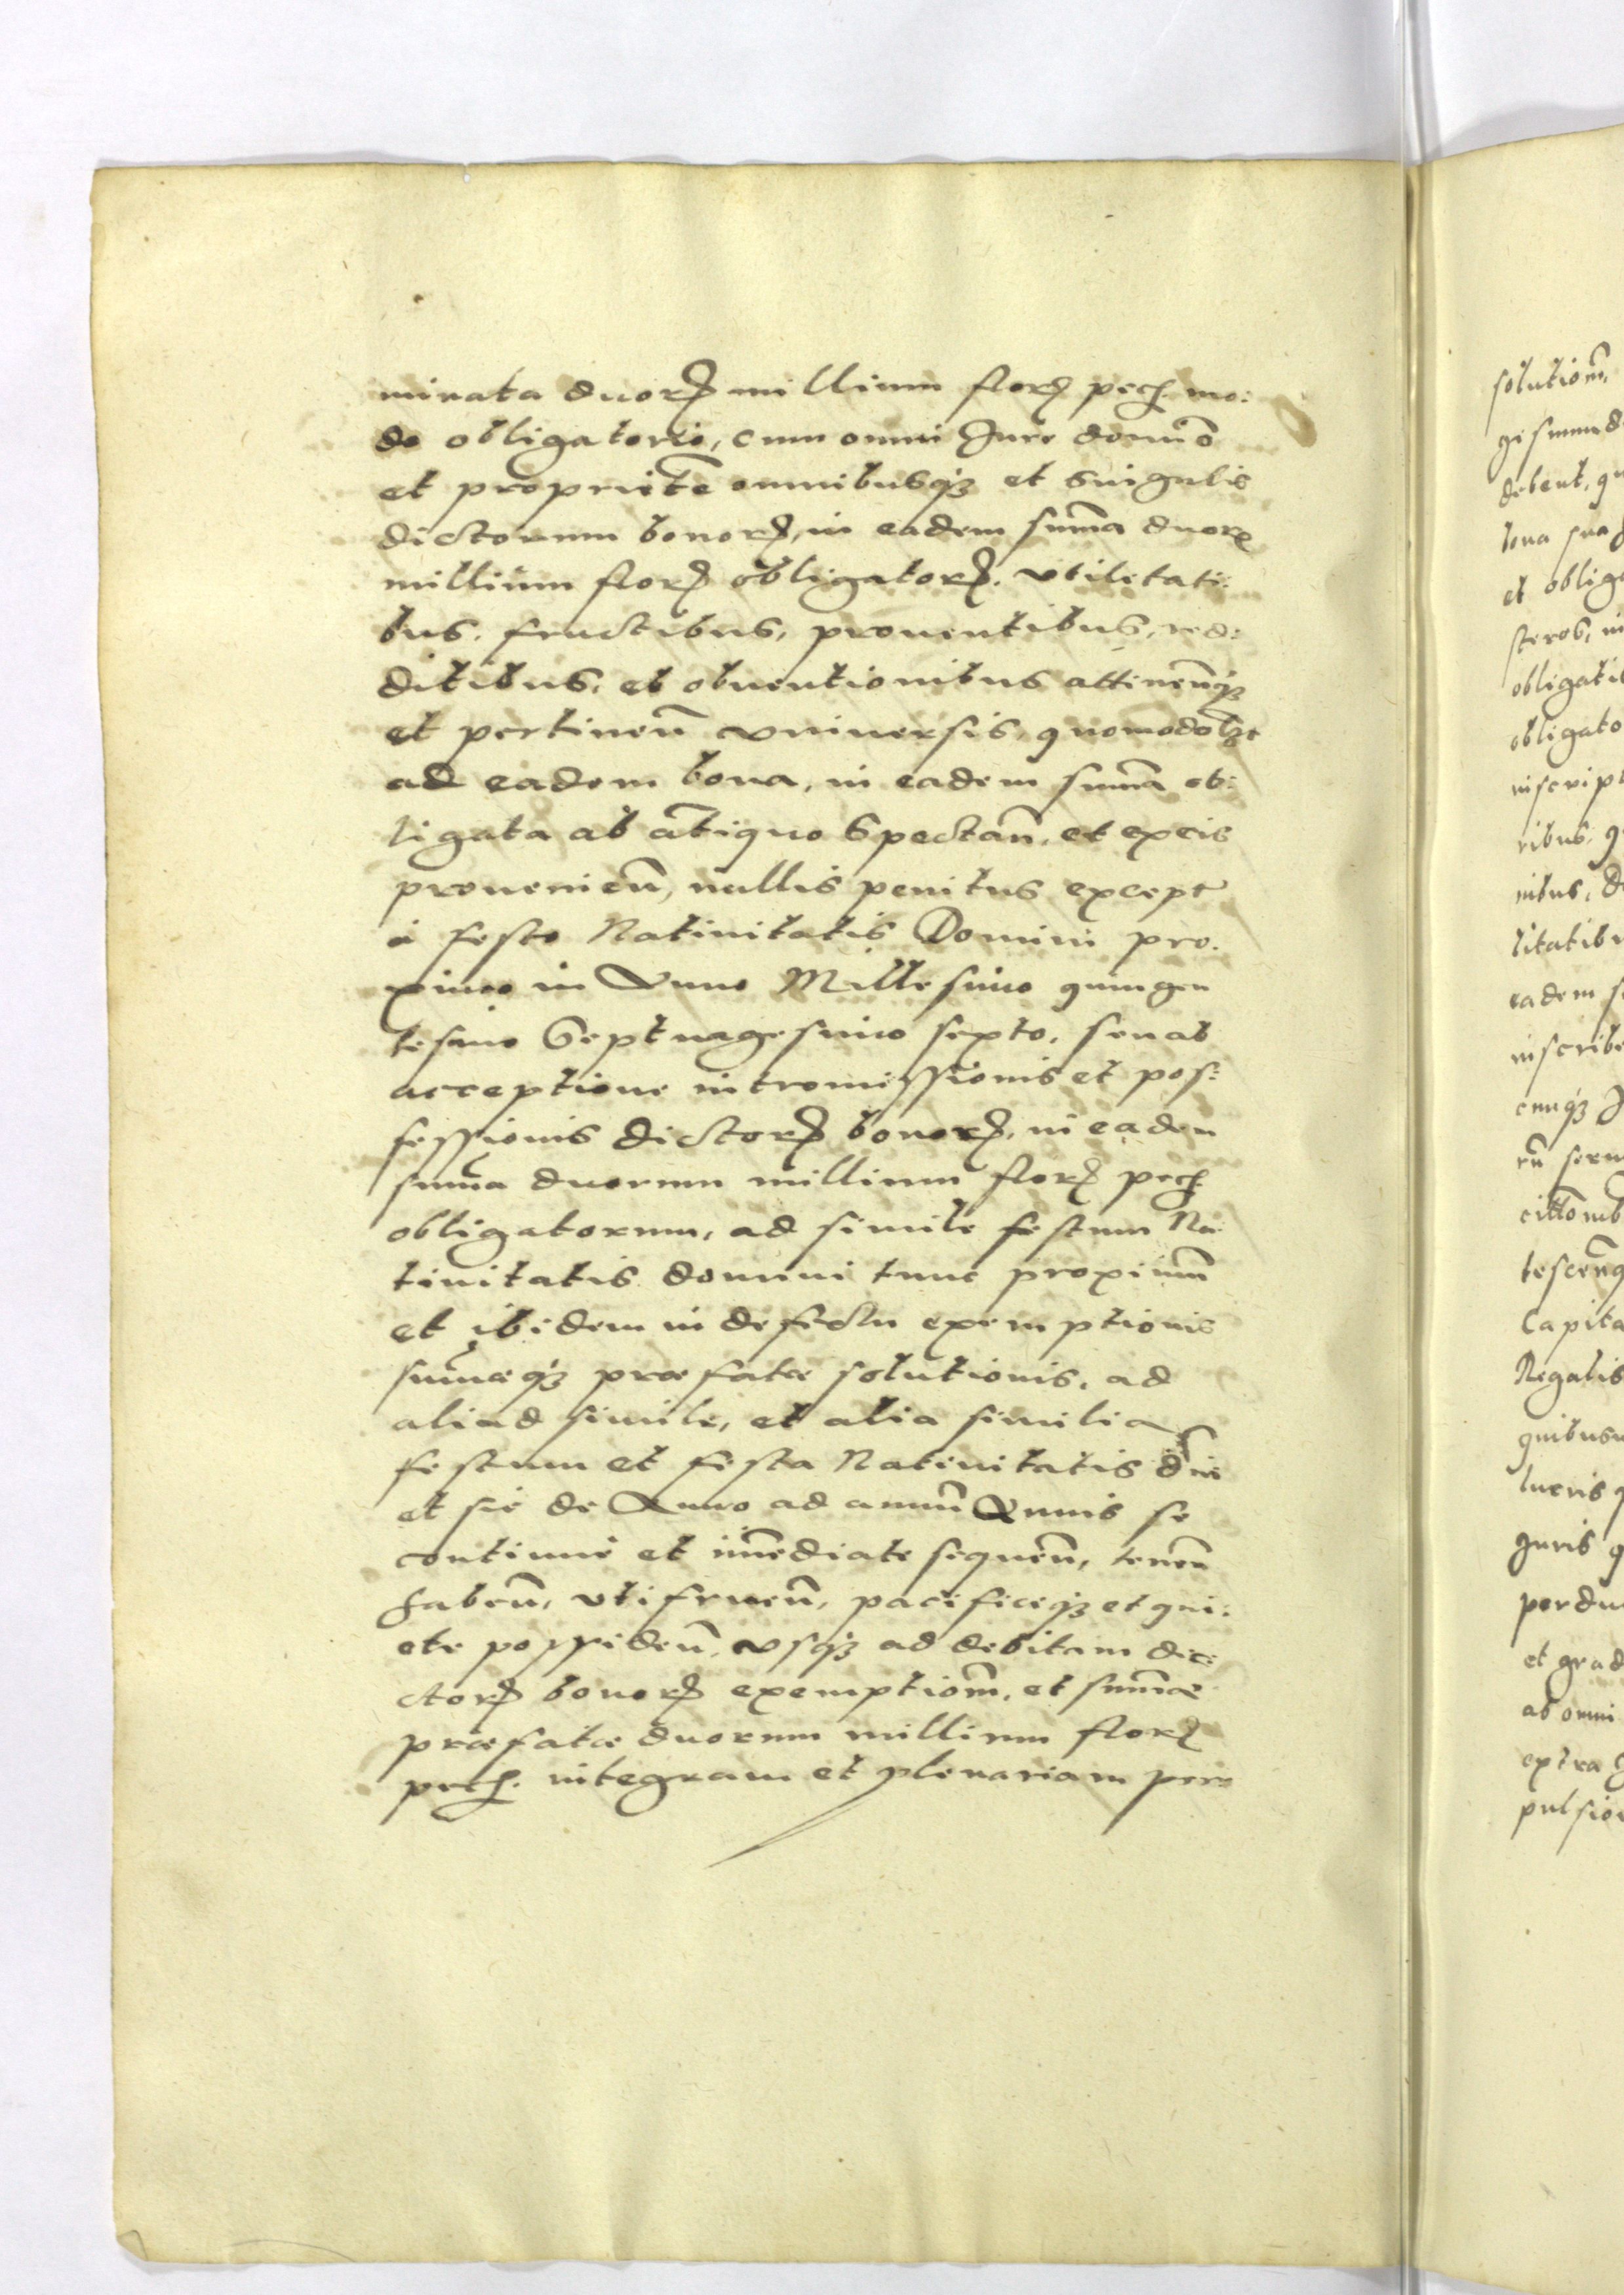 minata duorꝝ millium florꝝ pecħ. mo:
do obligatorio, cum omni Jure domīo
et proprietē omnibusqꝫ et singulis
dictorum bonorꝝ, in eadem sum̄a duorꝝ
millium florꝝ obligatorꝝ. vtilitati:
bus. fructibus, prouentibus, red:
ditibus, et obuentionibus attinen̄qꝫ
et pertinen̄ vniuersis, quomodolꝫt
ad eadem bona, in eadem sum̄a ob:
ligata ab ātiquo spectan̄, et ex eis
prouenien̄, nullis penitus except
à festo Natiuitatis Domini pro.
ximo in Anno Millesimo quingen
tesimo Septuagesimo sexto, seu ab
acceptione intromissionis et pos:
sessionis dictorꝝ bonorꝝ, in eadem
sum̄a duorum millium florꝝ pecħ
obligatorum, ad simile festum Na
tiuitatis domini tunc proximū
et ibidem in defectu exemptionis
sum̄æqꝫ præfatæ solutionis, ad
aliud simile, et alia similia
festum et festa Natiuitatis dn̄i
et sic de Anno ad annū Annis se
continuè et im̄ediate sequen̄, tenen̄
haben̄, vtifruen̄, pacificeqꝫ et qui:
ete possiden̄, vsqꝫ ad debitam dic:
ctorꝝ bonorꝝ exemptiom̄, et sum̄æ
præfatæ duorum millium florꝝ
pecħ. integram et plenariam per
solutiom̄,
debent,
bona sua
et oblig
steros, in
obligati
obligato
inscript
ribus,
nibus,
litatibu
eadem s
inscribe
Capita
Regalis
quibusu
lucris
Juris
perdu
et grad
ab omni
extra
pulsio